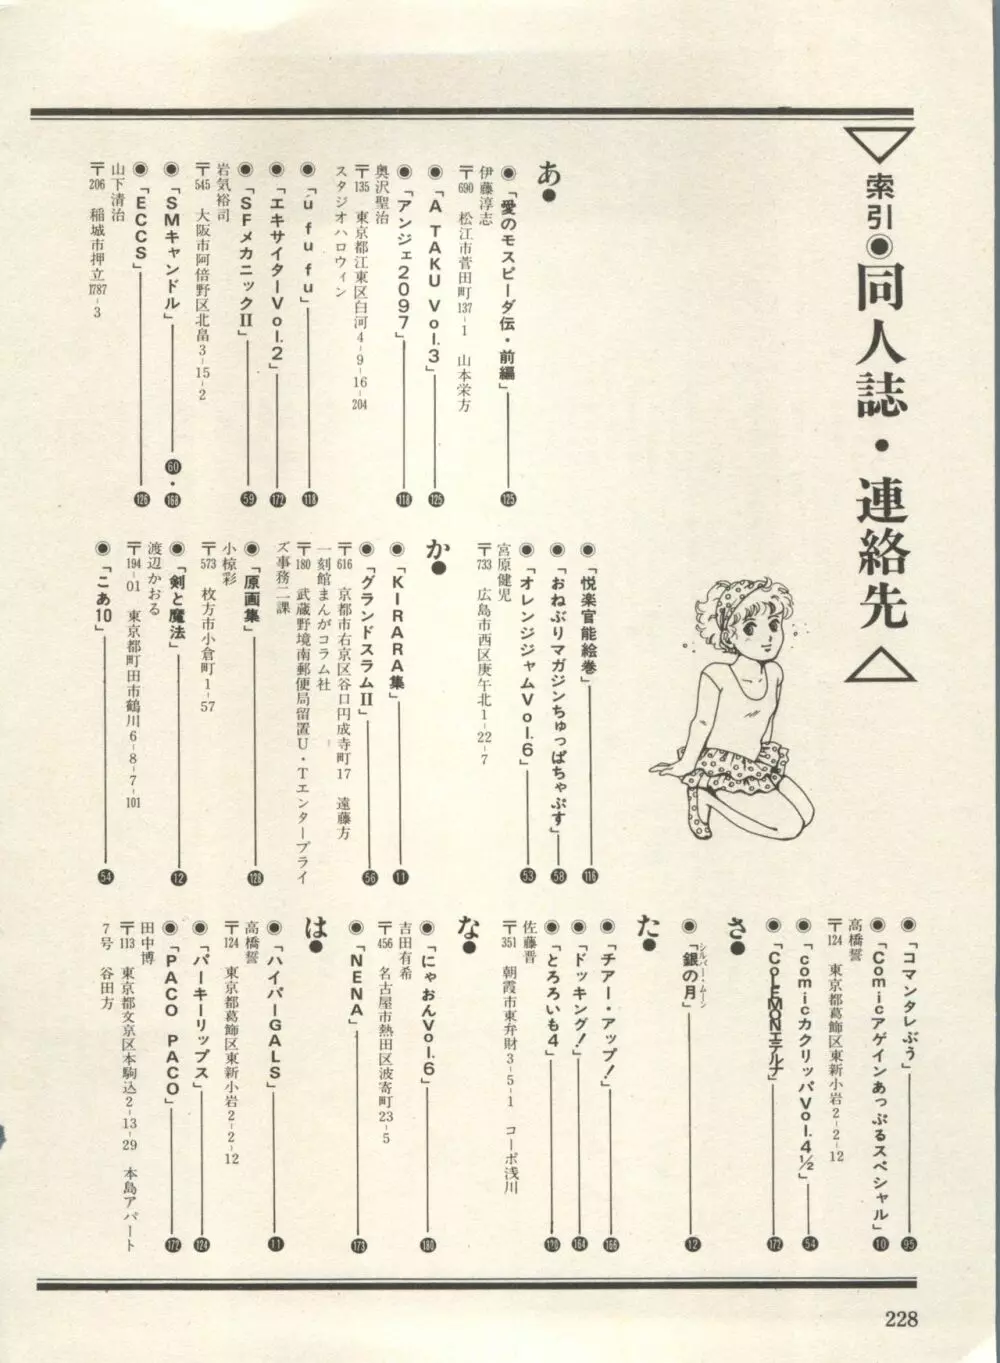 索引◉同人誌・連絡先
あ●
◉「愛のモスピーダ伝・前編」125
伊藤淳志
〒690 松江市菅田町137-1 山本栄方
◉「A TAKU Vol.3」125
◉「アンジェ2097」118
奥沢聖治
〒135 東京都江東区白河4-9-16-204
スタジオハロウィン
◉「u fu fu」118
◉「エキサイターVol.2」172
◉「SFメカニックⅡ」59
岩気裕司
〒545 大阪市阿倍野区北畠3-15-2
◉「SMキャンドル」60・168
◉「ECCS」126
山下清治
〒206 稲城市押立1787-3
◉「悦楽官能絵巻」116
◉「おねぶりマガジンちゅっぱちゃぷす」58
◉「オレンジジャムVol.6」53
宮原健児
〒733 広島市西区庚午北1-22-7
か●
◉「KIRARA集」11
◉「グランドスラムⅡ」56
〒616 京都市右京区谷口円成寺町17 遠藤方
一刻館まんがコラム社
〒180 武蔵野境南郵便局留置U・Tエンタープライ
ズ事務二課
◉「原画集」128
小椋彩
〒573 枚方市小倉町1-57
◉「剣と魔法」12
渡辺かおる
〒194-01 東京都町田市鶴川6-8-7-101
◉「こあ10」54
◉「コマンタレぶう」95
◉「Comicアゲインあっぷるスペシャル」10
高橋誓
〒124 東京都葛飾区東新小岩2-2-12
◉「comicカクリッパVol.4½」54
◉「CoLEMONエテルナ」172
さ●
◉「銀の月」12
シルバー・ムーン
た●
◉「チアー・アップ!」166
◉「ドッキング!」164
◉「とろろいも4」120
佐藤晋
〒351 朝霞市東弁財3-5-1 コーポ浅川
な●
◉「にゃおんVol.6」180
吉田有希
〒456 名古屋市熱田区波寄町23-5
◉「NENA」173
は●
◉「ハイパーGALS」11
高橋誓
〒124 東京都葛飾区東新小岩2-2-12
◉「パーキーリップス」124
◉「PACO PACO」172
田中博
〒113 東京都文京区本駒込2-13-29 本島アパート
7号 谷田方
228